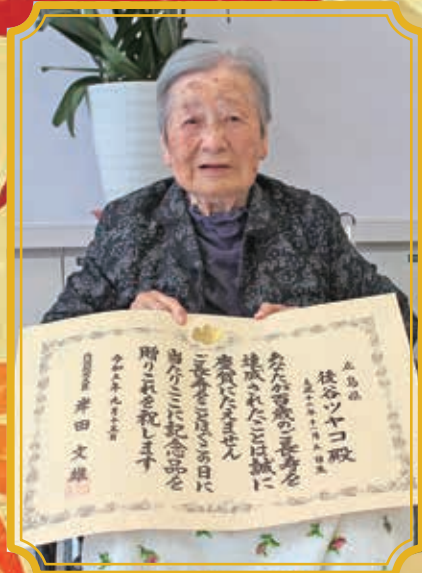 広島県
後谷ツヤコ殿
あなたが百歳のご長寿を
達成されたことは誠に
慶賀にたえません
ご長寿をことほぐこの日に
当たりここに記念品を
贈りこれを祝します
令和五年九月十五日
内閣総理大臣 岸田文雄